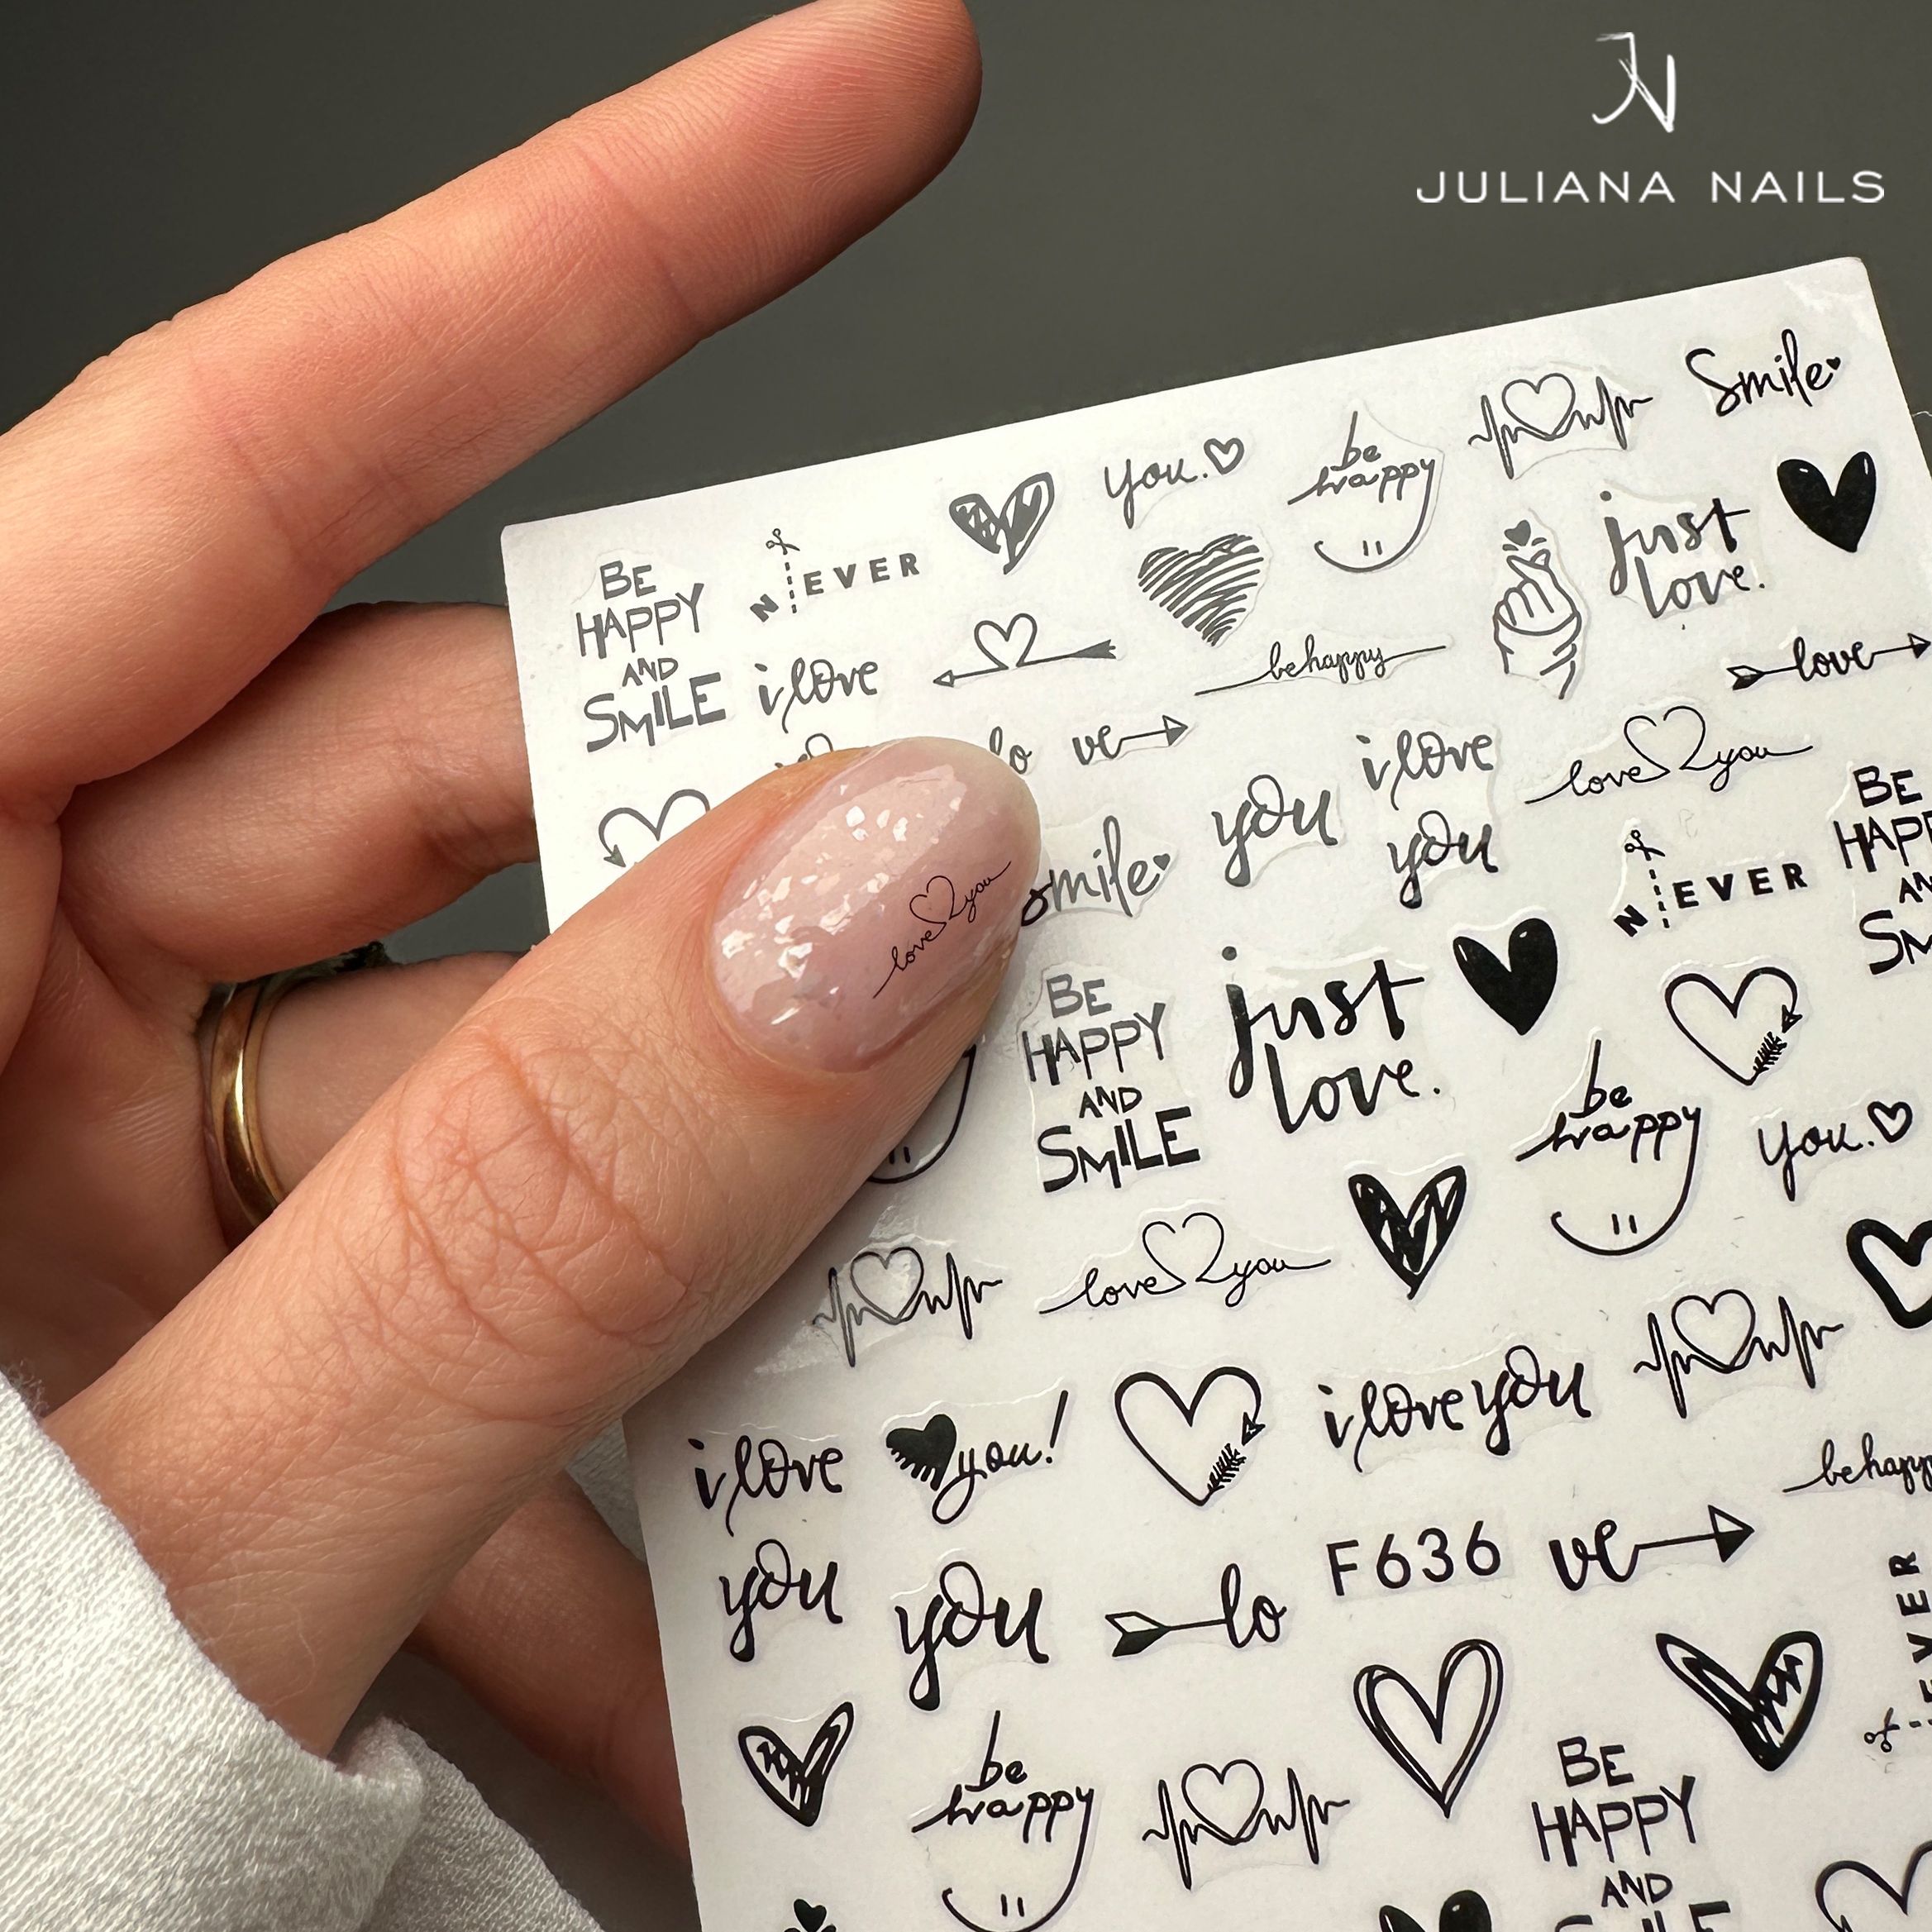 JN
JULIANA NAILS
smile
be
happy
you.
BE
HAPPY
AND
SMILE
NEVER
just
love.
i love
be happy
love
lo
ve
i love
you
you
love you
BE
NEVER
smile
BE
HAPPY
AND
SMILE
just
love.
be
happy
you.
love you
love you
i love
you
you!
i love you
F636
lo
ve
you
be
happy
BE
HAPPY
AND